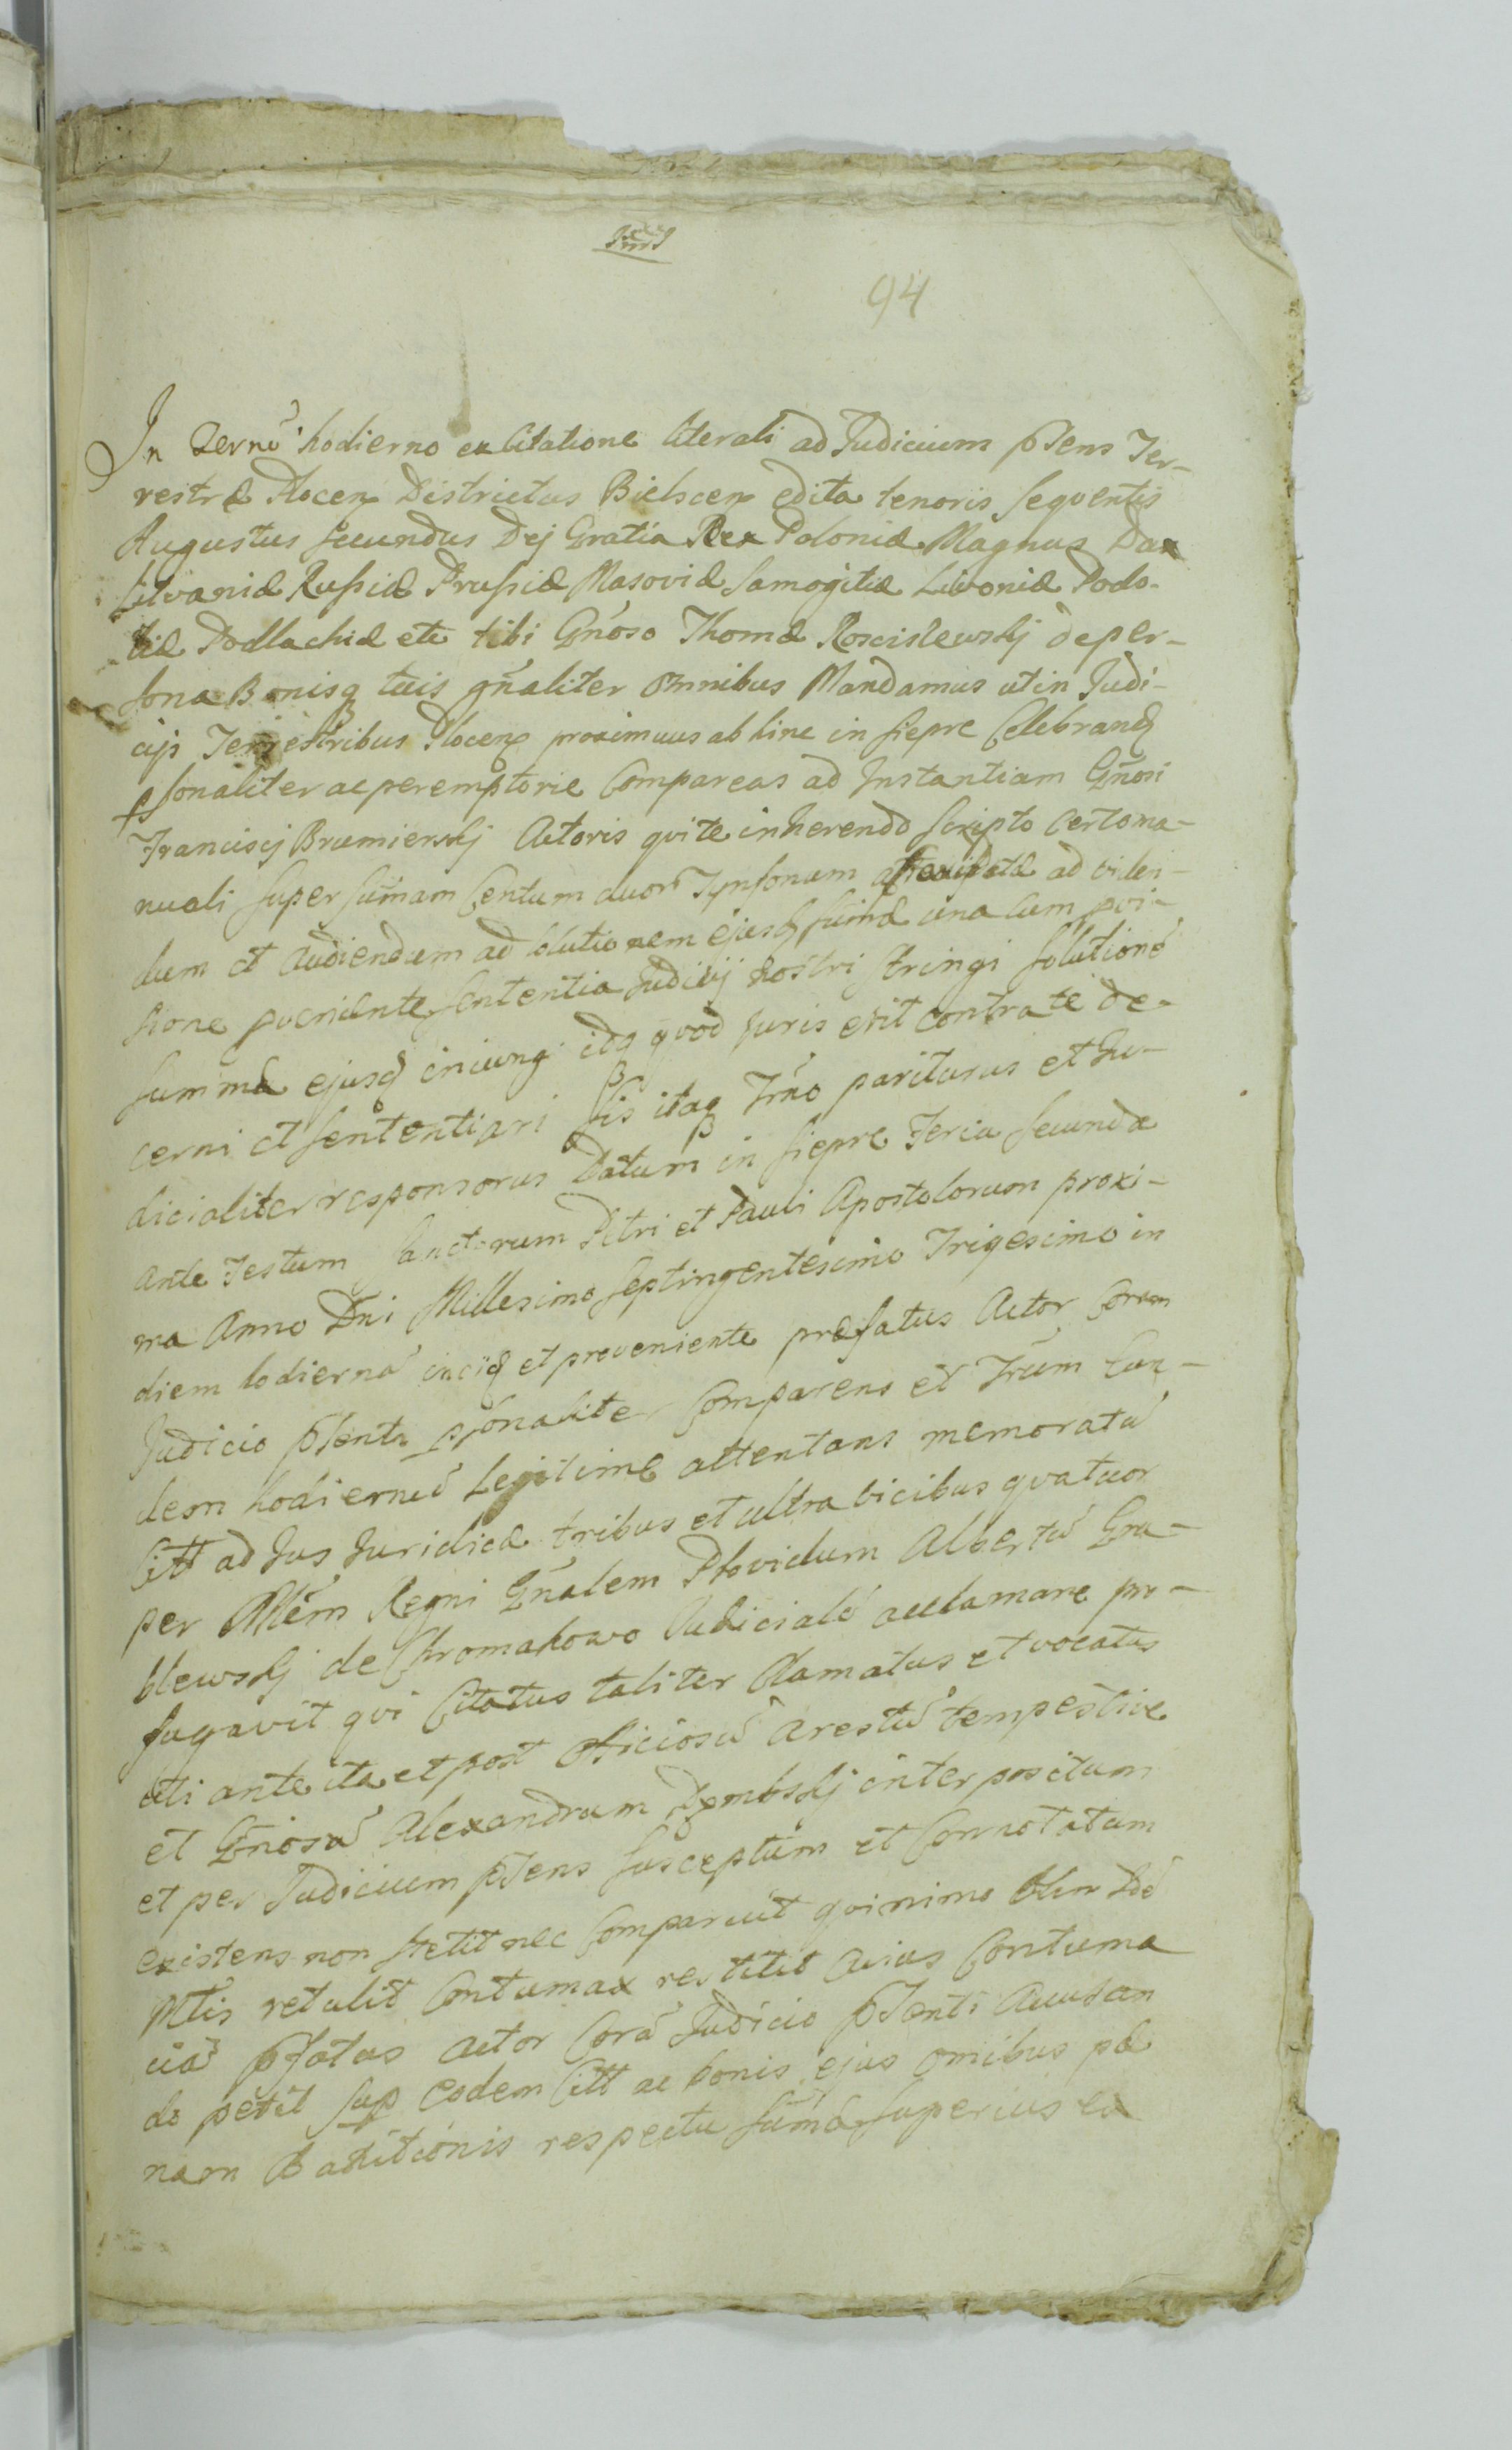 94
In Termo hodierno ex Citatione literali ad Judicium pñsens Ter-
restræ Plocen Districtus Bielscen edita tenoris sequentis
Augustus Secundus Dej Gratia Rex Poloniæ Magnus Dux
Litvaniæ Russiæ Prussiæ Masoviæ Samogitiæ Livoniæ Podo-
liæ Podlachiæ etc tibi Gñoso Thomæ Roscislewskj de per-
sona Bonisq tuis gñaliter omnibus Mandamus ut in Judi-
cijs Terrestribus Plocen proximius ab hinc in Siepre Celebrand
psonaliter ac peremptorie Compareas ad Instantiam Gñosi
Franciscj Brumierskj Actoris qui te inherendo scripto certo ma-
nuali super sumam Centum duor Tynfonum ad viden-
dum et audiendum ad solutionem ejusd sumæ una cum
sione sententia Judicij nostri stringi solutionē
summæ ejusd iniung idq quod Juris erit contra te de-
cerni et sententiari sis itaq Trño pariturus et Ju-
dicialiter responsorus Datum in Siepre Feria Secunda
ante Festum Sanctorum Petri et Pauli Apostolorum proxi-
ma Anno Dni Millesimo Septingentesimo Trigesimo in
diem hodiernā incid et preveniente præfatus Actor Coram
Judicio pñsenti psonaliter Comparens et Trum Eun-
dem hodiernū Legitime attentans memoratū
Citt ad Jus Juridicæ tribus et ultra vicibus quatuor
per Mtem Regni Gñalem Providum Albertū Gru-
blewskj de Chromakowo Judicialē acclamare pro-
curavit qui Citatus taliter Clamatus et vocatus
uti ante ita et post officiosū arestū tempestive
et Gñosū Alexandrum Dembskj interpositum
et per Judicium pñsens susceptum et Connotatum
existens non stetit nec Comparuit quinimo
Mtis retulit Contumax restitit Cuius Contuma
ciā pfatus Actor Corā Judicio psenti accusan
do petit sup eodem Citt ac bonis ejus omibus pæ
nam respectu sumæ superius ex